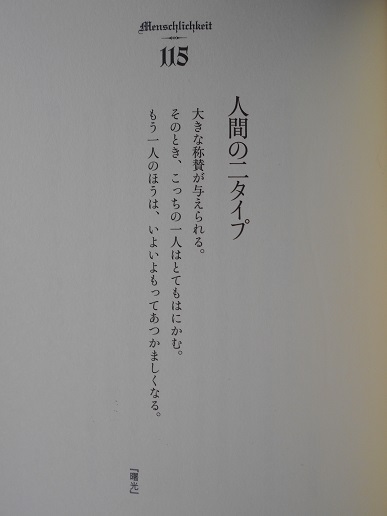 Menschlichkeit
115
人間の二タイプ
大きな称賛が与えられる。
そのとき、こっちの一人はとてもはにかむ。
もう一人のほうは、いよいよもってあつかましくなる。
『曙光』